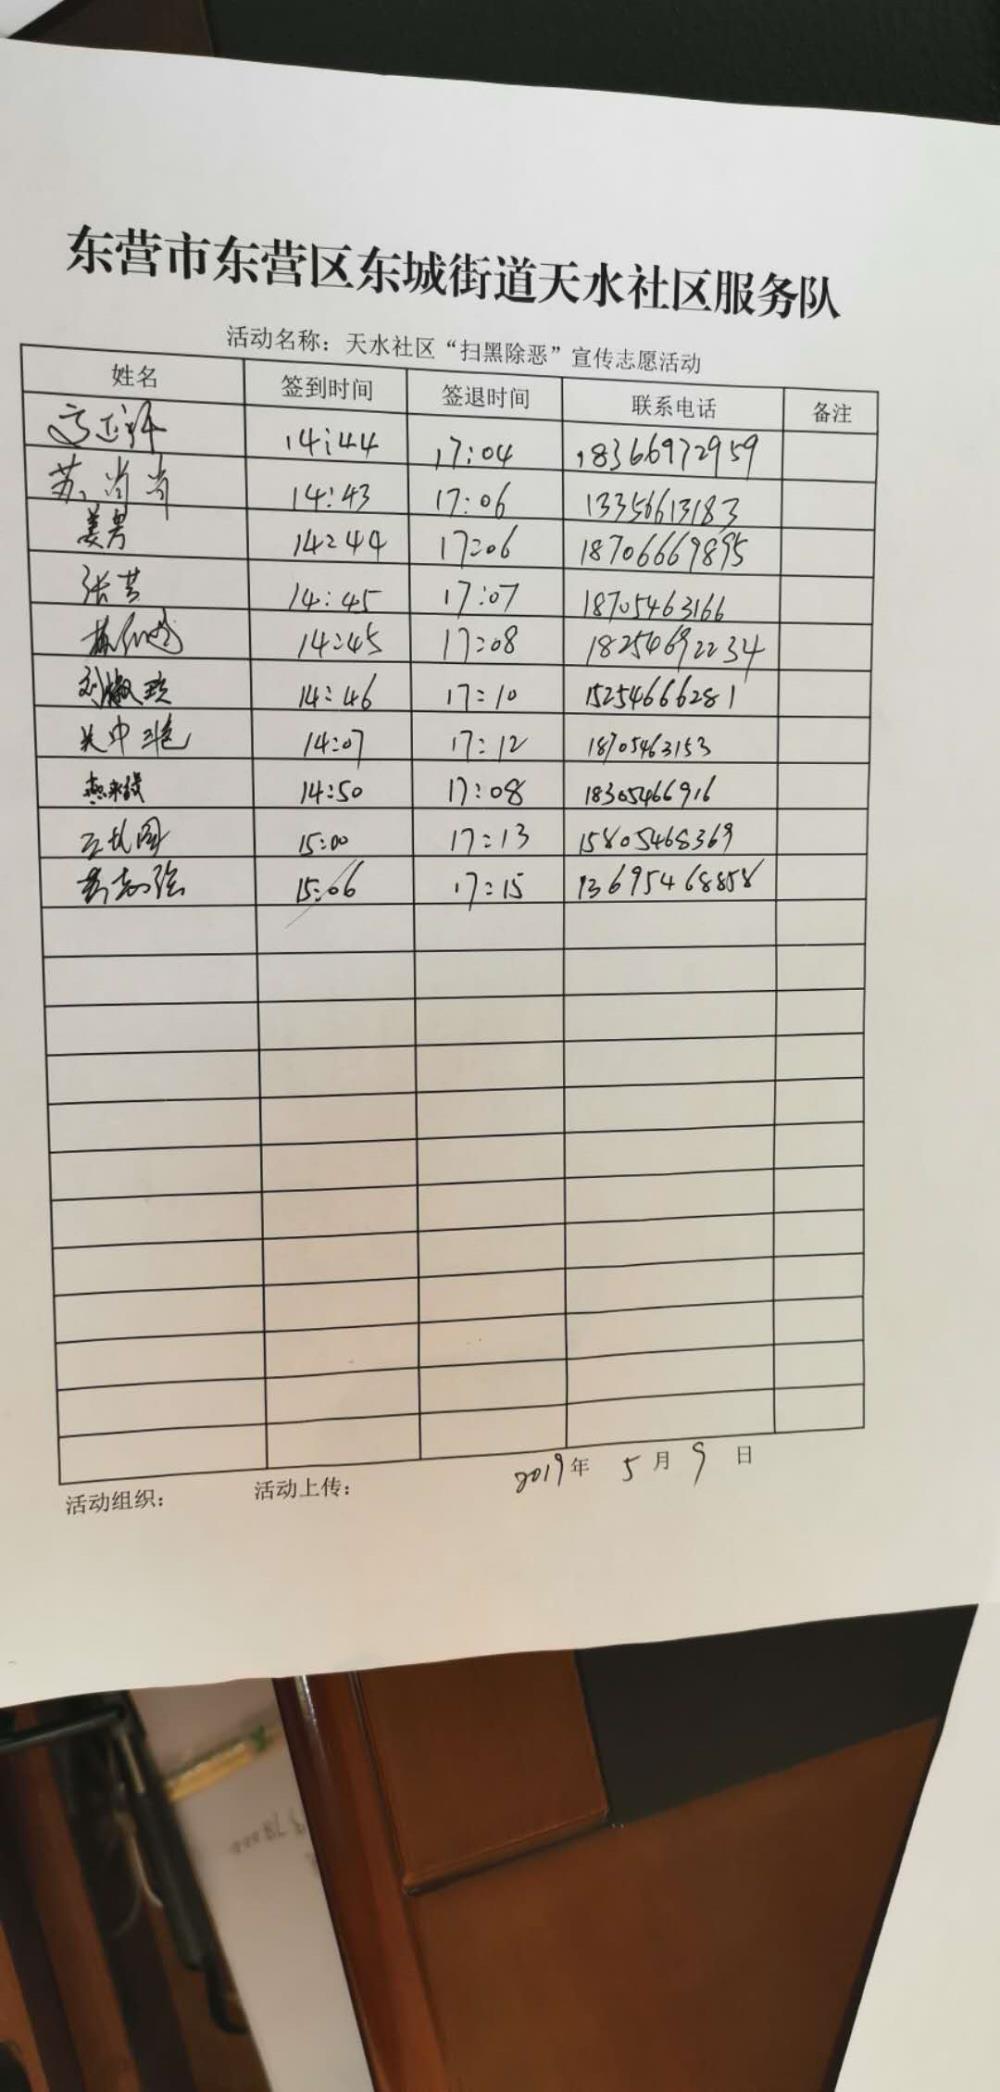 东营市东营区东城街道天水社区服务队
活动名称：天水社区“扫黑除恶”宣传志愿活动
姓名 签到时间 签退时间 联系电话 备注
14:44 17:04 18366972959
苏尚尚 14:43 17:06 13356613183
姜男 14:44 17:06 18706669895
张芸 14:45 17:07 18705463166
14:45 17:08 18254692234
刘淑玲 14:46 17:10 15254666281
14:07 17:12 18705463153
14:50 17:08 18305466916
15:00 17:13 15805468369
15:06 17:15 13695468858
2019年 5月 9日
活动组织： 活动上传：